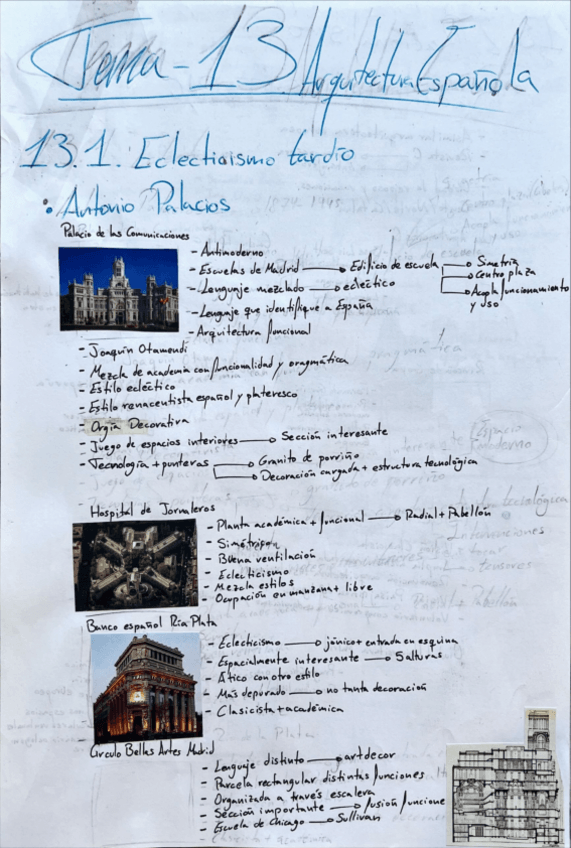 Tema-13 Arquitectura Española
13.1. Eclecticismo tardío
• Antonio Palacios
Palacio de las Comunicaciones
- Antimoderno
- Escuelas de Madrid → Edificio de escuela → Simetría
→ Centro plaza
→ Acopla funcionamiento y uso
- Lenguaje mezclado → ecléctico
- Lenguaje que identifique a España
- Arquitectura funcional
- Joaquín Otamendi
- Mezcla de academia con funcionalidad y oragmática
- Estilo ecléctico
- Estilo renacentista español y plateresco
- Orgía Decorativa
- Juego de espacios interiores → Sección interesante
- Tecnología + punteras → Granito de porriño
→ Decoración cargada + estructura tecnológica
Hospital de Jornaleros
- Planta académica + funcional → Radial + Pabellón
- Simétrico
- Buena ventilación
- Eclecticismo
- Mezcla estilos
- Ocupación en manzana + libre
Banco español Ría Plata
- Eclecticismo → jónico + entrada en esquina
- Espacialmente interesante → 5 alturas
- Ático con otro estilo
- Más depurado → no tanta decoración
- Clasicista + académica
Círculo Bellas Artes Madrid
- Lenguaje distinto → art decor
- Parcela rectangular distintas funciones
- Organizada a través escalera
- Sección importante → fusión funcione
- Escuela de Chicago → Sullivan